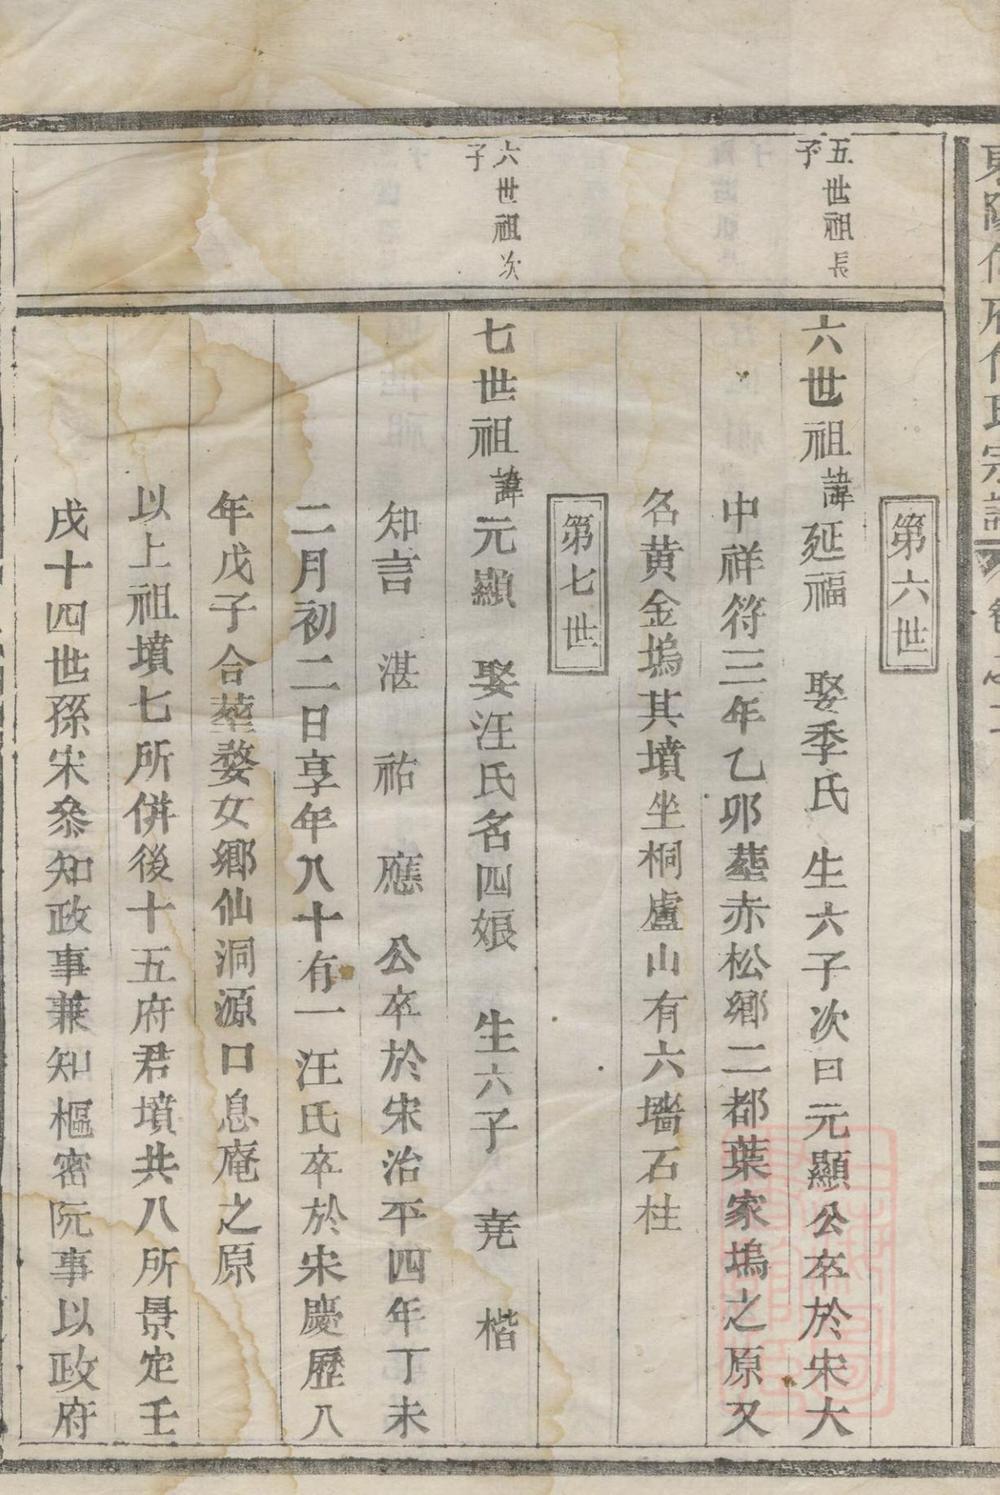 第六世
五世祖長子
六世祖諱延福 娶季氏 生六子次曰元顯公卒於宋大
中祥符三年乙卯塟赤松鄉二都葉家塢之原又
名黄金塢其墳坐桐廬山有六墻石柱
第七世
六世祖次子
七世祖諱元顯 娶汪氏名四娘 生六子 堯 楷
知言 湛 祐 應 公卒於宋治平四年丁未
二月初二日享年八十有一汪氏卒於宋慶歷八
年戊子合塟婺女鄉仙洞源口息庵之原
以上祖墳七所併後十五府君墳共八所景定壬
戌十四世孫宋叅知政事兼知樞密阮事以政府